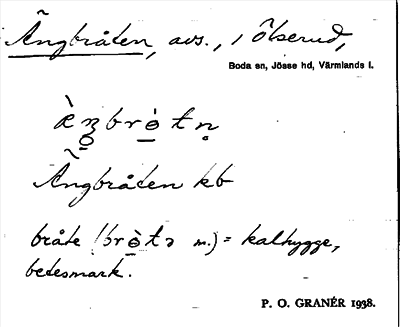 Ängbråten, avs., i Ölserud,
Boda sn, Jösse hd, Värmlands l.
Ängbråten kb
bråte (brò̱tə m.) = kalhygge,
betesmark.
P. O. GRANÉR 1938.